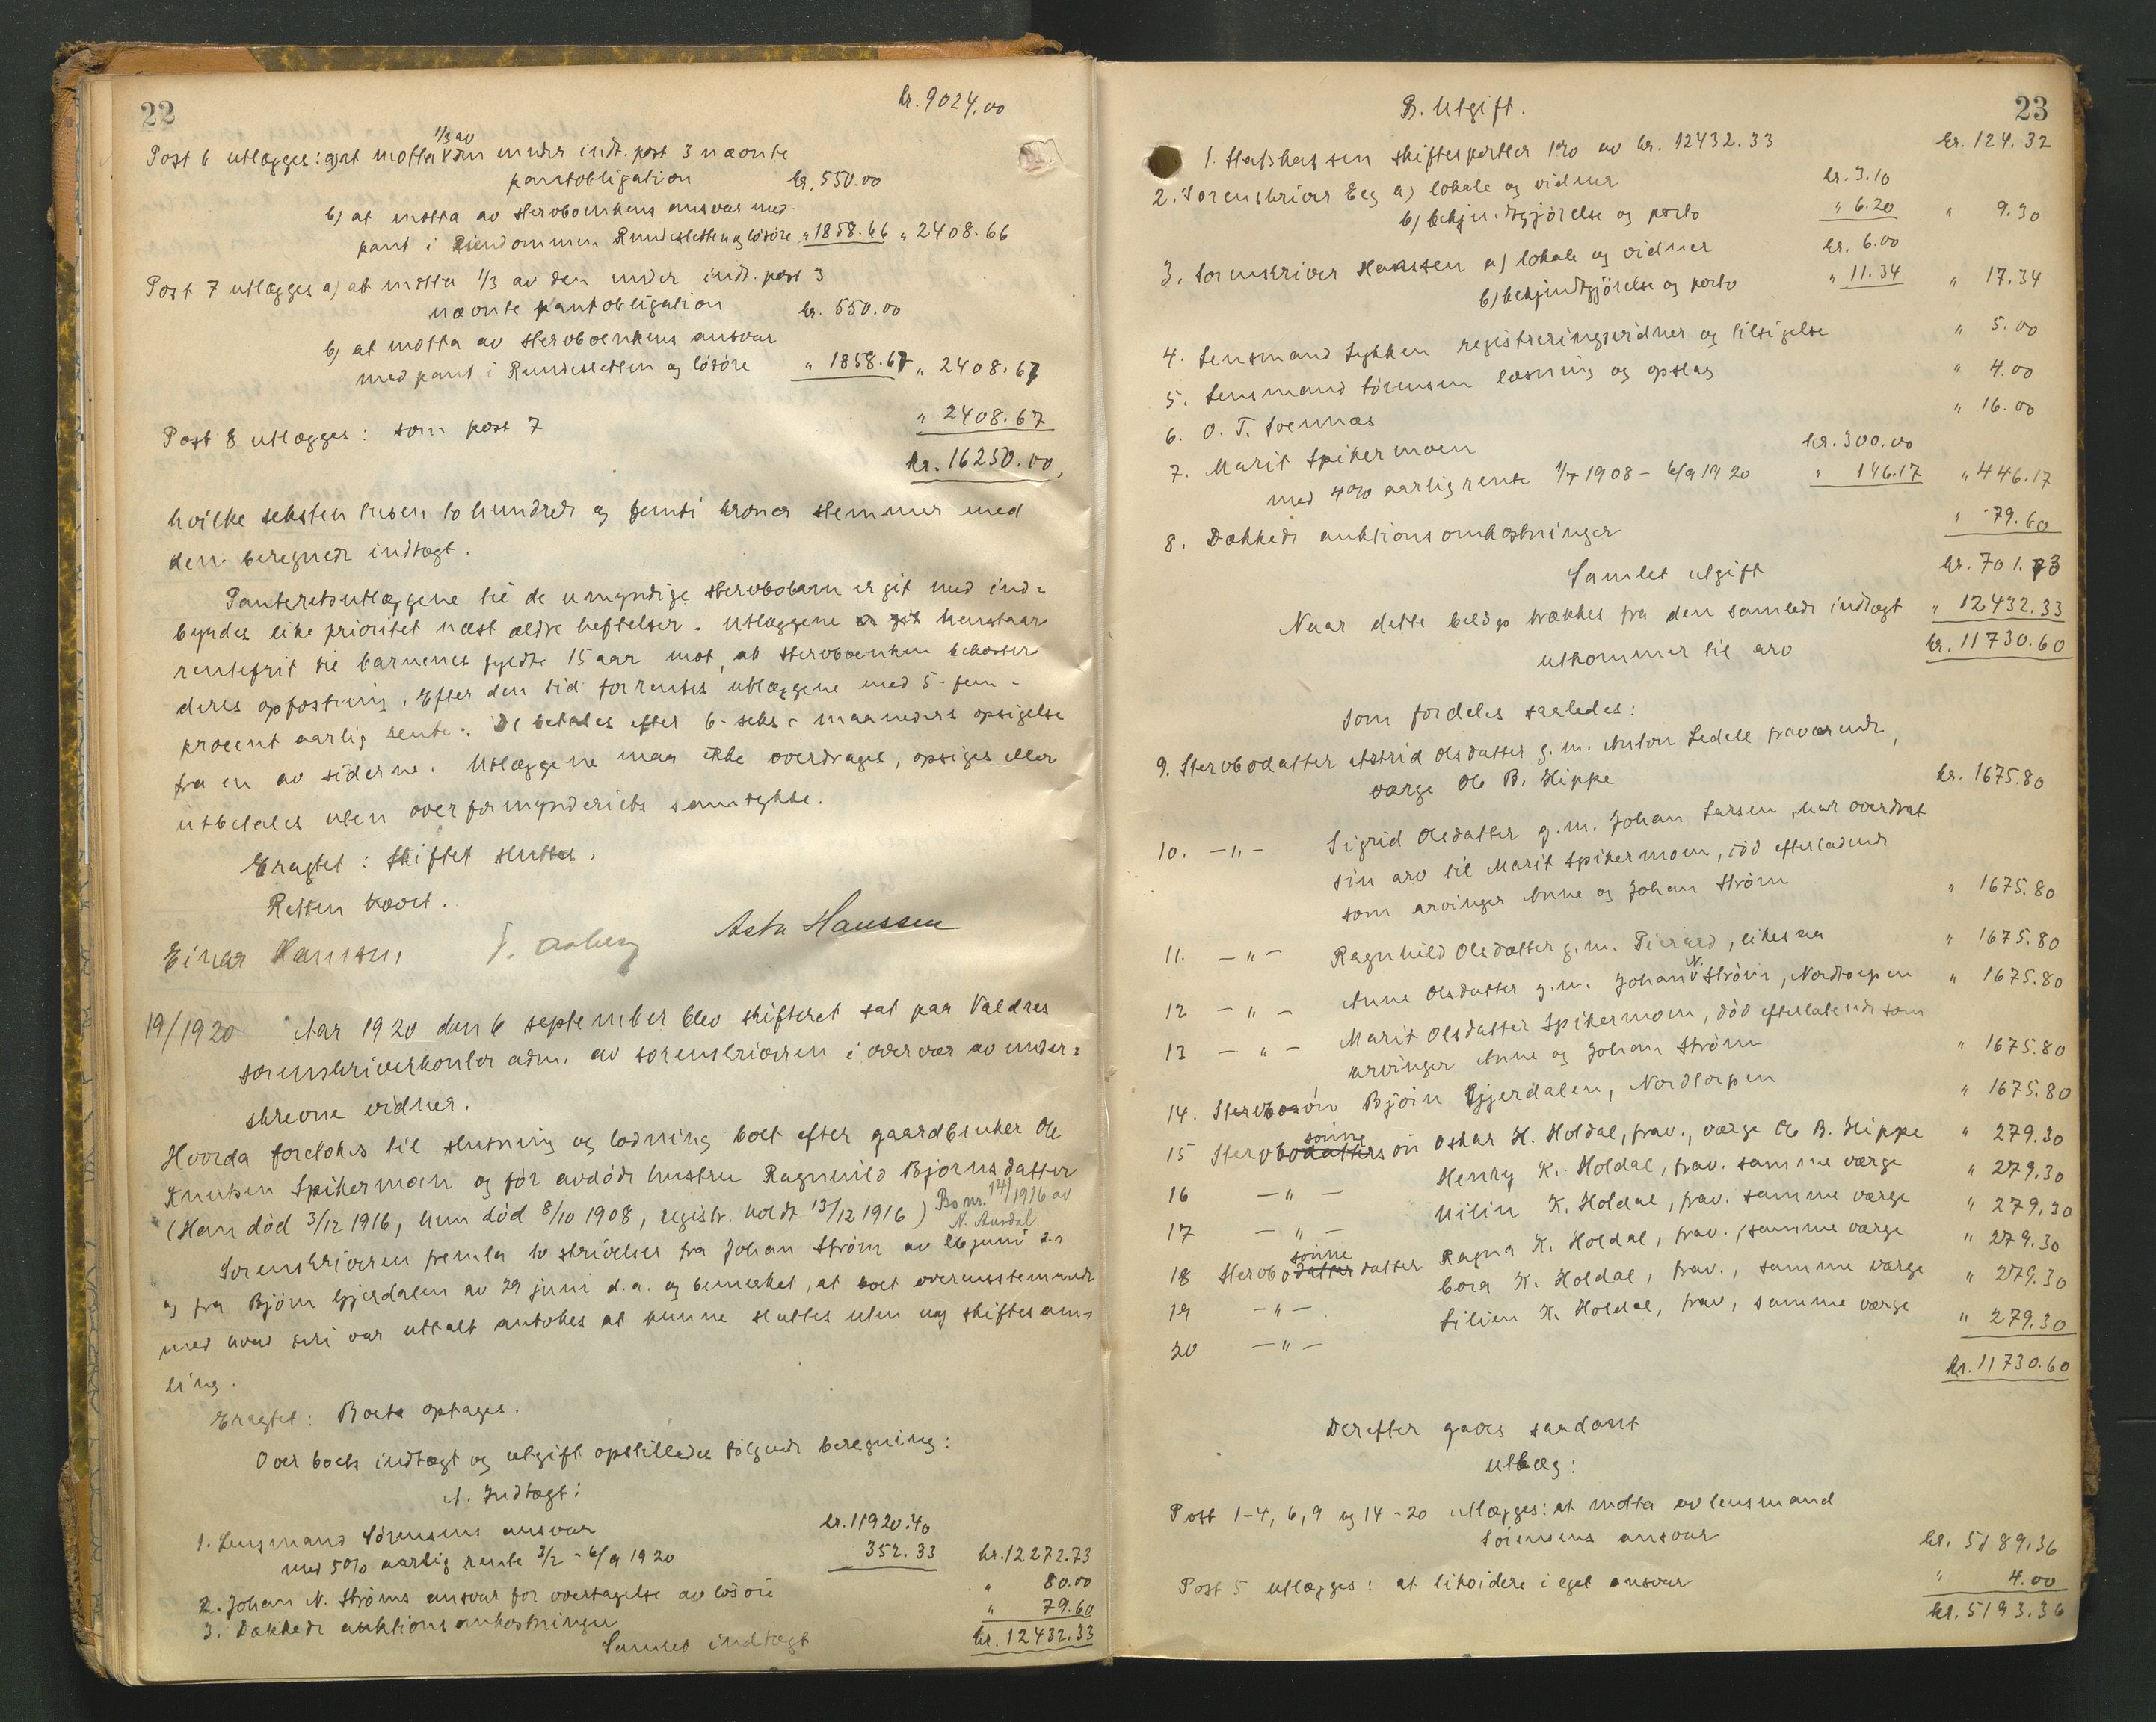 22
kr. 9024.00
Post 6 utlægges: a) at motta 1/3 av den under indt. post 3 nævnte
pantobligation kr. 550.00
b) at motta av stervboenkens ansvar med
pant i Eiendommen Rundesletten og lösöre " 1858.66 " 2408.66
Post 7 utlægges a) at motta 1/3 av den under indt. post 3
nævnte pantobligation kr. 550.00
b) at motta av stervboenkens ansvar
med pant i Rundesletten og lösöre " 1858.67 " 2408.67
Post 8 utlægges: som post 7 " 2408.67
kr. 16250.00,
hvilke seksten tusen to hundrede og femti kroner stemmer med
den beregnede indtægt.
Panteretsutlæggene til de umyndige stervbobarn er git med ind-
byrdes like prioritet næst ældre heftelser. Utlæggene er git henstaar
rentefrit til barnenes fyldte 15 aar mot, at stervboenken bekoster
deres opfostring. Efter den tid forrentes utlæggene med 5 - fem -
procent aarlig rente. De betales efter 6 - seks - maaneders opsigelse
fra en av siderne. Utlæggene maa ikke overdrages, opsiges eller
utbetales uten overformynderiets samtykke.
Eragtet: Skiftet sluttet.
Retten hævet.
Einar Hanssen, T. Aaberg Asta Hanssen
19/1920 Aar 1920 den 6 september blev skifteret sat paa Valdres
sorenskriverkontor adm. av sorenskriveren i overvær av under-
skrevne vidner.
Hvorda foretokes til slutning og lodning boet efter gaardbruker Ole
Knutsen Spikermoen og för avdöde hustru Ragnhild Bjornsdatter
(Han död 3/12 1916, hun död 8/10 1908, registr. holdt 13/12 1916) Bo nr. 14/1916 av
N. Aurdal
Sorenskriveren fremla to skrivelser fra Johan Ström av 26 juni d.a.
og fra Björn Gjerdalen av 29 juni d.a. og bemerket, at boet overensstemmende
med hvad heri var uttalt antokes at kunne sluttes uten ny skiftesam-
ling.
Eragtet: Boets optages.
Over boets indtægt og utgift opstilledes fölgende beregning:
A. Indtægt:
1. Lensmand Sörensens ansvar kr. 11920.40
med 5% aarlig rente 3/2 - 6/9 1920 352.33 kr. 12272.73
2. Johan N. Ströms ansvar for overtagelse av lösöre " 80.00
3. Dækkede auktionsomkostninger " 79.60
Samlet indtægt kr. 12432.33
23
B. Utgift.
1. Statskassen skiftesportler 1% av kr. 12432.33 kr. 124.32
2. Sorenskriver Eeg a) lokale og vidner kr. 3.10
b) bekjendtgjörelse og porto " 6.20 " 9.30
3. Sorenskriver Hanssen a) lokale og vidner kr. 6.00
b) bekjendtgjörelse og porto " 11.34 " 17.34
4. Lensmand Lykken registreringsvidner og tilsigelse " 5.00
5. Lensmand Sörensen læsning og opslag " 4.00
6. O. T. Svennæs " 16.00
7. Marit Spikermoen kr. 300.00
med 4% aarlig rente 1/7 1908 - 6/9 1920 " 146.17 " 446.17
8. Dækkede auktionsomkostninger " 79.60
Samlet utgift kr. 701.73
Naar dette belöp trækkes fra den samlede indtægt " 12432.33
utkommer til arv kr. 11730.60
som fordeles saaledes:
9. Stervbodatter Astrid Olsdatter g.m. Anton Ledell fraværende,
værge Ole B. Hippe kr. 1675.80
10. -"- Sigrid Olsdatter g.m. Johan Larsen, har overdrat
sin arv til Marit Spikermoen, död efterladende
som arvinger Anne og Johan Ström " 1675.80
11. -"- Ragnhild Olsdatter g.m. Pierard, likesaa " 1675.80
12 -"- Anne Olsdatter g.m. Johan N. Ström, Nordtorpen " 1675.80
13 -"- Marit Olsdatter Spikermoen, död efterlatende som
arvinger Anne og Johan Ström " 1675.80
14. Stervbosön Björn Gjerdalen, Nordtorpen " 1675.80
15 Stervbodatters sönnesön Oskar H. Holdal, frav., værge Ole B. Hippe " 279.30
16 -"- Henry K. Holdal, frav. samme værge " 279.30
17 -"- Milin K. Holdal, frav. samme værge " 279.30
18 Stervbodatter sönnedatter Ragna K. Holdal, frav., samme værge " 279.30
19 -"- Cora K. Holdal, frav., samme værge " 279.30
20 -"- Lilien K. Holdal, frav, samme værge " 279.30
kr. 11730.60
Derefter gaves saadant
utlæg:
Post 1-4, 6, 9 og 14-20 utlægges: at motta av lensmand
Sörensens ansvar kr. 5189.36
Post 5 utlægges: at likvidere i eget ansvar " 4.00
kr. 5193.36